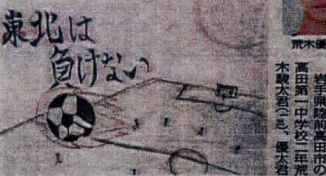 東北は
負けない
荒木優
岩手県陸前高田市の
高田第一中学校二年荒
木駿太君(右)、優太君